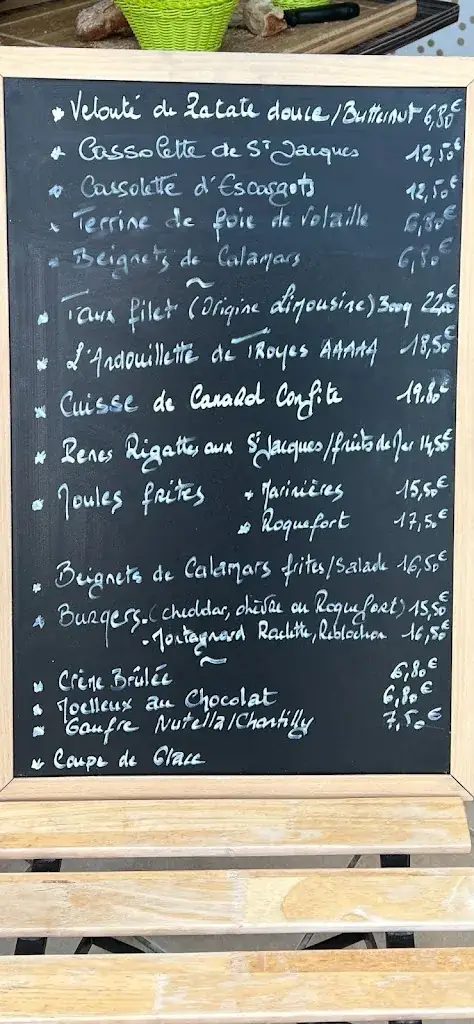 * Velouté de Patate douce/Butternut 6,80€
* Cassolette de St Jacques 12,50€
* Cassolette d'Escargots 12,50€
* Terrine de foie de volaille 6,80€
* Beignets de Calamars 6,80€
~
* Faux filet (Origine Limousine) 300g 22,00€
* L'Andouillette de TRoyes AAAAA 18,50€
* Cuisse de Canard Confite 19,80€
* Penes Rigattes aux St Jacques/fruits de Mer 14,50€
* Moules frites * Marinières 15,50€
* Roquefort 17,50€
* Beignets de Calamars frites/Salade 16,50€
* Burgers. (cheddar, chèvre ou Roquefort) 15,50€
. Montagnard Raclette, Reblochon 16,50€
~
* Crème Brûlée 6,80€
* Moelleux au Chocolat 6,80€
* Gaufre Nutella/Chantilly 7,50€
* Coupe de Glace